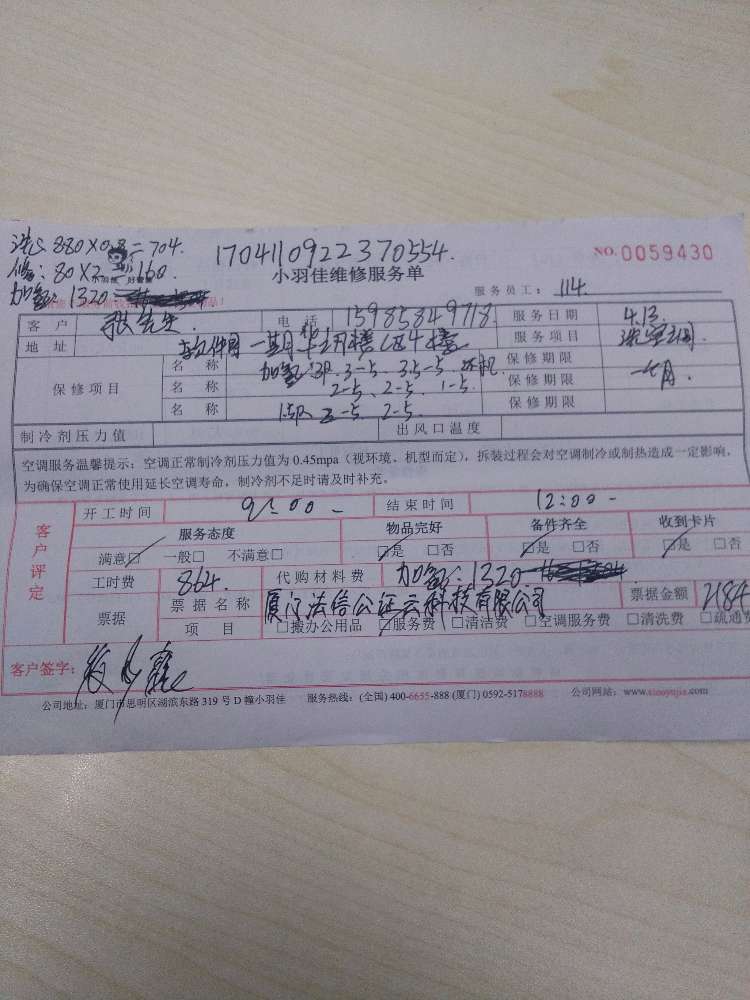 洗: 880×0.8=704.
修: 80×2=160.
加氢: 1320
1704110922370554.
小羽佳维修服务单
NO. 0059430
服务员工: 114.
客 户 张先生 电 话 15985849718 服务日期 4.13.
地 址 一期 4楼 服务项目 洗空调
保修项目
名 称 加氢: 3-5. 3.5-5. 保修期限
名 称 2-5、2-5、1-5. 保修期限 一个月.
名 称 2-5. 保修期限
制冷剂压力值 出风口温度
空调服务温馨提示: 空调正常制冷剂压力值为 0.45mpa（视环境、机型而定），拆装过程会对空调制冷或制热造成一定影响，
为确保空调正常使用延长空调寿命，制冷剂不足时请及时补充。
客户评定
开工时间 9:00 - 结束时间 12:00 -
服务态度 物品完好 备件齐全 收到卡片
满意□ 一般□ 不满意□ □是 □否 □是 □否 □是 □否
工时费 864. 代购材料费 加氢: 1320
票据 票据名称 厦门法信公证云科技有限公司 票据金额 2184
项 目 □搬办公用品 □服务费 □清洁费 □空调服务费 □清洗费 □疏通费
客户签字:
公司地址: 厦门市思明区湖滨东路 319 号 D 幢小羽佳 服务热线: (全国) 400-6655-888 (厦门) 0592-5178888 公司网站: www.xiaoyujia.com